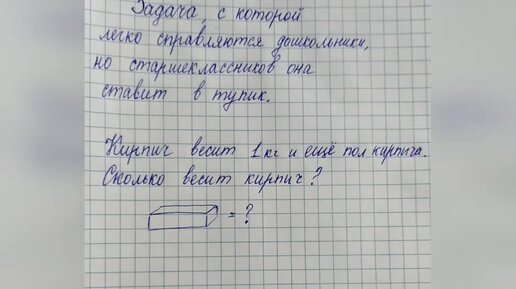 Задача, с которой
легко справляются дошкольники,
но старшеклассников она
ставит в тупик.
Кирпич весит 1 кг и ещё пол кирпича.
Сколько весит кирпич?
= ?